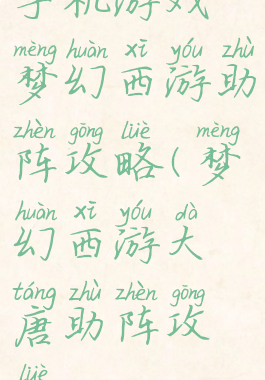 手机游戏
mèng huàn xī yóu zhù
梦幻西游助
zhèn gōng lüè mèng
阵攻略(梦
huàn xī yóu dà
幻西游大
táng zhù zhèn gōng
唐助阵攻
lüè